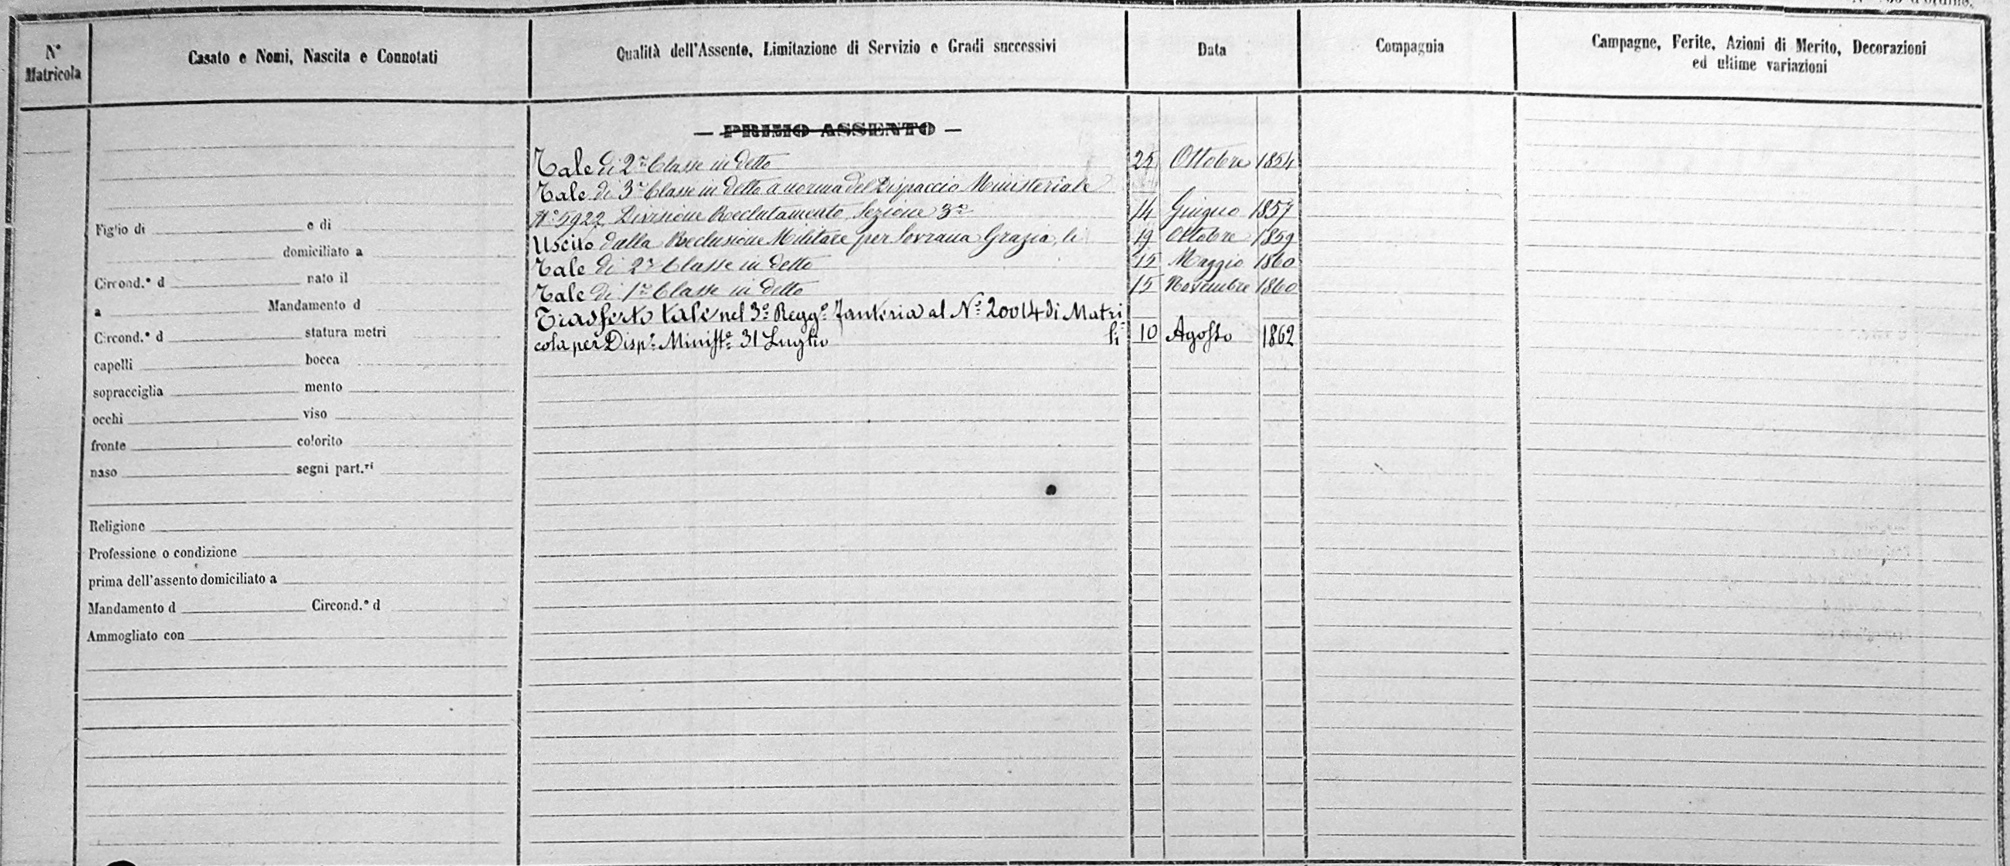 d'ordine.
N° Matricola
Casato e Nomi, Nascita e Connotati
Qualità dell'Assento, Limitazione di Servizio e Gradi successivi
Data
Compagnia
Campagne, Ferite, Azioni di Merito, Decorazioni
ed ultime variazioni
— PRIMO ASSENTO —
Tale di 2ª Classe in detto 25 Ottobre 1854
Tale di 3ª Classe in detto a norma del Dispaccio Ministeriale
N° 5922 Divisione Reclutamento Sezione 3ª 14 Giugno 1857
Uscito dalla Reclusione Militare per Sovrana Grazia, li 19 Ottobre 1859
Tale di 2ª Classe in detto 15 Maggio 1860
Tale di 1ª Classe in detto 15 Novembre 1860
Trasferto tale nel 3° Regg° Fanteria al N° 20014 di Matri
cola per Disp° Minist° 31 Luglio li 10 Agosto 1862
Figlio di e di
domiciliato a
Circond.° d nato il
a Mandamento d
Circond.° d statura metri
capelli bocca
sopracciglia mento
occhi viso
fronte colorito
naso segni part.ri
Religione
Professione o condizione
prima dell'assento domiciliato a
Mandamento d Circond.° d
Ammogliato con